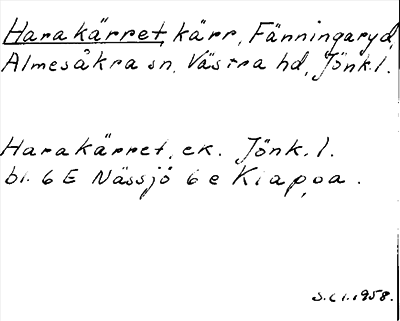 Harakärret, kärr, Fänningaryd,
Almesåkra sn, Västra hd, Jönk.l.
Harakärret, ek. Jönk.l.
bl. 6 E Nässjö 6 e
1958.